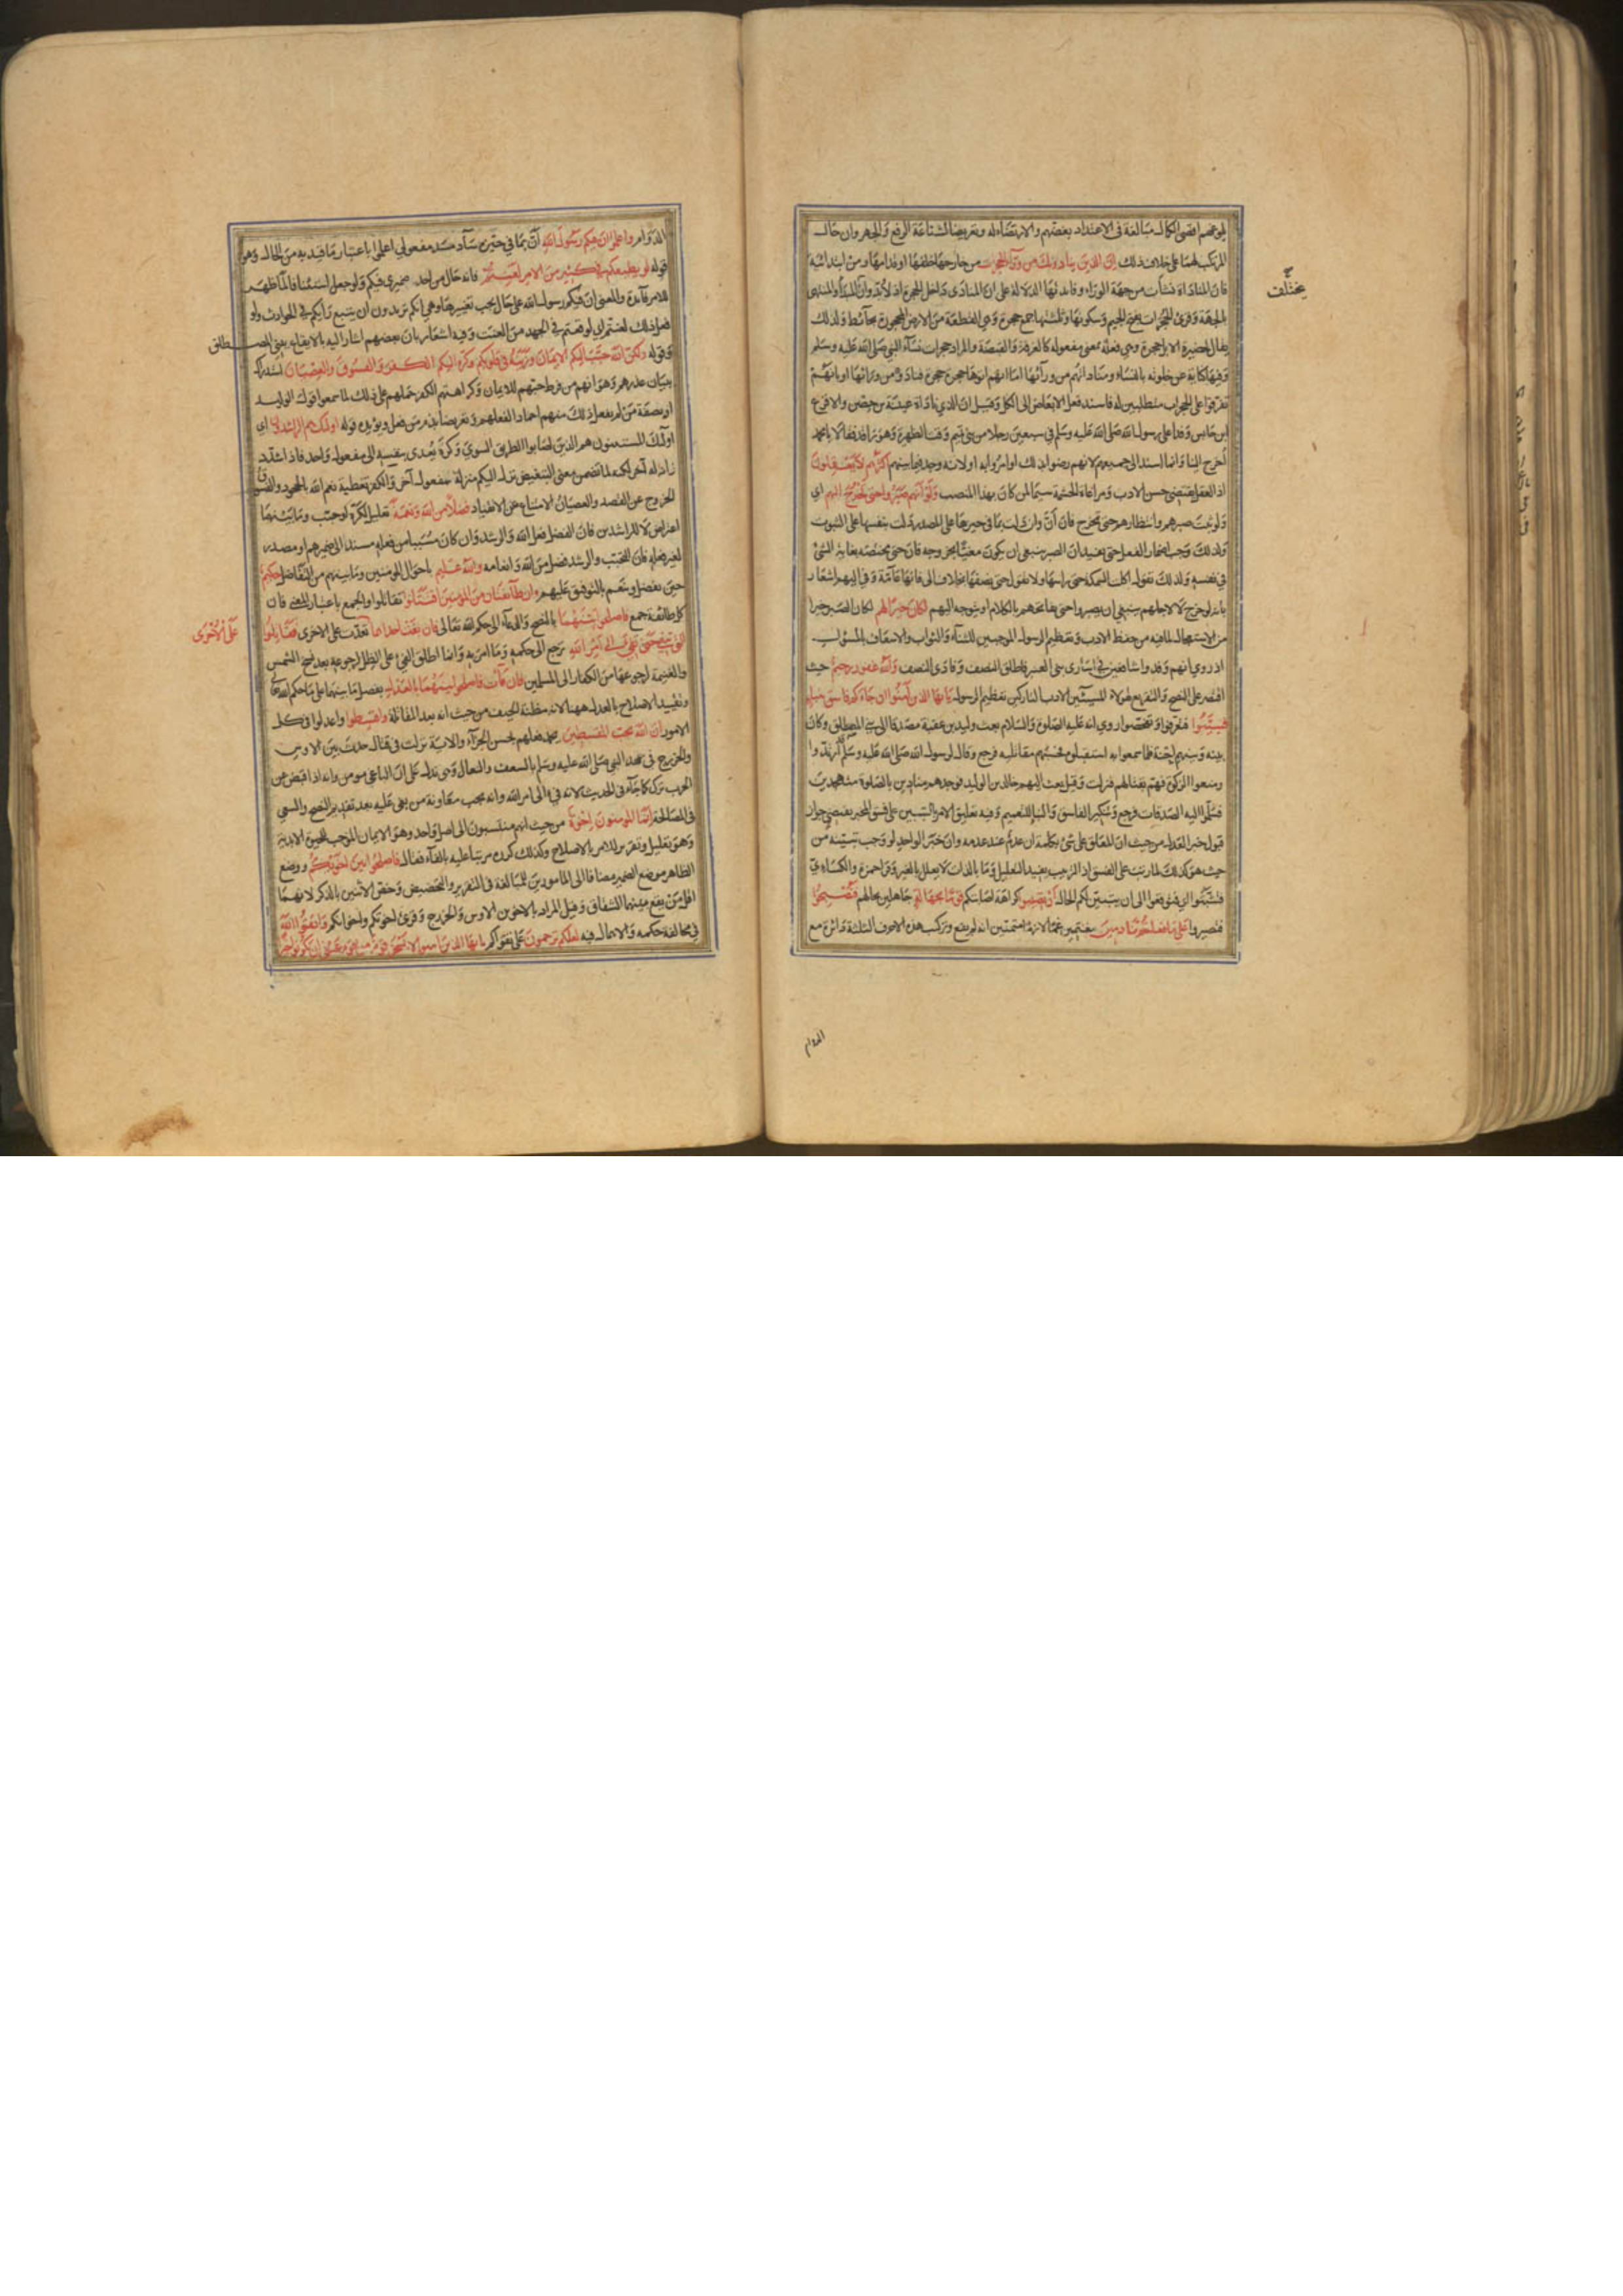 المرتكب لهما على خلاف ذلك ان الذين ينادونك من ورآء الحجرات من خارجها خلفها او قدامها ومن ابتدائية
مختلف
فان المناداة نشأت من جهة الورآء وفائدتها الدلالة على ان المنادى داخل الحجرة اذ لا بد وان المبدأ والمنتهى
بالجهة وقرئ الحجرات بفتح الجيم وسكونها وثلثتها جمع حجرة وهي القطعة من الارض المحجورة بحآئط ولذلك
يقال لحظيرة الابل حجرة وهي فعلة بمعنى مفعولة كالغرفة والقبضة والمراد حجرات نسآء النبي صلى الله عليه وسلم
وفيها كناية عن خلوته بالنسآء ومناداتهم من ورآئها اما بانهم اتوها حجرة حجرة فنادوه من ورائها او بانهم
تفرقوا على الحجرات متطلبين له فاسند فعل الابعاض الى الكل وقيل ان الذي ناداه عيينة بن حصن والاقرع
ابن حابس وفدا على رسول الله صلى الله عليه وسلم في سبعين رجلا من بني تميم وقت الظهيرة وهو راقد فقالا يا محمد
اخرج الينا وانما اسند الى جميعهم لانهم رضوا بذلك او امروا به او لانه وجد فيما بينهم اكثرهم لا يعقلون
اذ العقل يقتضي حسن الادب ومراعاة الحشمة سيما لمن كان بهذا المنصب ولو انهم صبروا حتى تخرج اليهم اي
ولو ثبت صبرهم وانتظارهم حتى تخرج فان أنّ وان دلت بما في حيزها على المصدر دلت بنفسها على الثبوت
ولذلك وجب اضمار الفعل وحتى يفيد ان الصبر ينبغي ان يكون مغيّا بخروجه فان حتى مختصة بغاية الشئ
في نفسه ولذلك تقول اكلت السمكة حتى راسها ولا تقول حتى نصفها بخلاف الى فانها عامة وفي اليهم اشعار
بانه لو خرج لا لاجلهم ينبغي ان يصبروا حتى يفاتحهم بالكلام او يتوجه اليهم لكان خيرا لهم لكان الصبر خيرا
من الاستعجال لما فيه من حفظ الادب وتعظيم الرسول الموجبين للثنآء والثواب والاسعاف بالمسؤول
اذ روي انهم وفدوا شافعين في اسارى بني العنبر فاطلق النصف وفادى النصف والله غفور رحيم حيث
اقتصر على النصح والتقريع لهؤلاء المسيئين الادب التاركين تعظيم الرسول يايها الذين آمنوا ان جاءكم فاسق بنبإ
فتبينوا فتعرفوا وتفحصوا روي انه عليه الصلوة والسلام بعث وليد بن عقبة مصدقا الى بني المصطلق وكان
بينه وبينهم احنة فلما سمعوا به استقبلوه فحسبهم مقاتليه فرجع وقال لرسول الله صلى الله عليه وسلم ارتدوا
ومنعوا الزكوة فهم بقتالهم فنزلت وقيل بعث اليهم خالد بن الوليد فوجدهم منادين بالصلوة متهجدين
فسلموا اليه الصدقات فرجع وتنكير الفاسق والنبإ للتعميم وفيه تعليق الامر بالتبين على فسق المخبر يقتضي جواز
قبول خبر العدل من حيث ان المعلق على شئ بكلمة ان عدم عند عدمه وان خبر الواحد لو وجب تبيّنه من
حيث هو كذلك لما رتب على الفسق اذ الترتيب يفيد التعليل وما بالذات لا يعلل بالغير وقرأ حمزة والكسائي
فتثبتوا اي فتوقفوا الى ان يتبين لكم الحال ان تصيبوا كراهة اصابتكم قوما بجهالة جاهلين بحالهم فتصبحوا
فتصيروا على ما فعلتم نادمين مغتمين غما لازما متمنين انه لم يقع وتركيب هذه الاحرف الثلثة دائرة مع
الدوام
الدوام واعلموا ان فيكم رسول الله أنّ بما في حيزه سآد مسد مفعولي اعلموا باعتبار ما قيد به من الحال وهو
قوله لو يطيعكم في كثير من الامر لعنتم فانه حال من احد ضميري فيكم ولو جعل استئنافا لما ظهر
للامر فآئدة والمعنى ان فيكم رسول الله على حال يجب تغييرها وهي انكم تريدون ان يتبع رايكم في الحوادث ولو
فعل ذلك لعنتم اي لوقعتم في الجهد من العنت وفيه اشعار بان بعضهم اشار اليه بالايقاع ببني المصطلق
وقوله ولكن الله حبب اليكم الايمان وزينه في قلوبكم وكره اليكم الكفر والفسوق والعصيان استدراك
ببيان عذرهم وهو انهم من فرط حبهم للايمان وكراهتهم الكفر حملهم على ذلك لما سمعوا قول الوليد
او بصفة من لم يفعل ذلك منهم احمادا لفعلهم وتعريضا بذم من فعل ويؤيده قوله اولئك هم الراشدون اي
اولئك المستثنون هم الذين اصابوا الطريق السوي وكره يتعدى بنفسه الى مفعول واحد فاذا شدد
زاد له آخر لكنه لما تضمن معنى التبغيض نزل اليكم منزلة مفعول آخر والكفر تغطية نعم الله بالجحود والفسوق
الخروج عن القصد والعصيان الامتناع عن الانقياد فضلا من الله ونعمة تعليل لكره او حبب وما بينهما
اعتراض لا للراشدين فان الفضل فعل الله والرشد وان كان مسببا من فعله مسند الى ضميرهم او مصدر
لغير فعله فان التحبب والرشد فضل من الله وانعامه والله عليم باحوال المؤمنين وما بينهم من التفاضل حكيم
حين يفضل وينعم بالتوفيق عليهم وان طآئفتان من المؤمنين اقتتلوا تقاتلوا والجمع باعتبار المعنى فان
كل طائفة جمع فاصلحوا بينهما بالنصح والدعآء الى حكم الله تعالى فان بغت احداهما تعدت على الاخرى فقاتلوا
على الاخرى
التي تبغي حتى تفئ الى امر الله ترجع الى حكمه وما امر به وانما اطلق الفئ على الظل لرجوعه بعد نسخ الشمس
والغنيمة لرجوعها من الكفار الى المسلمين فان فآءت فاصلحوا بينهما بالعدل بفصل ما بينهما على ما حكم الله
وتقييد الاصلاح بالعدل ههنا لانه مظنة الحيف من حيث انه بعد المقاتلة واقسطوا واعدلوا في كل
الامور ان الله يحب المقسطين يحمد فعلهم بحسن الجزآء والآية نزلت في قتال حدث بين الاوس
والخزرج في عهد النبي صلى الله عليه وسلم بالسعف والنعال وهي تدل على ان الباغي مومن وانه اذا قبض عن
الحرب ترك كما جآء في الحديث لانه فيء الى امر الله وانه يجب معاونة من بغي عليه بعد تقديم النصح والسعي
في المصالحة انما المؤمنون اخوة من حيث انهم منتسبون الى اصل واحد وهو الايمان الموجب للحيوة الابدية
وهو تعليل وتقرير للامر بالاصلاح وكذلك كرره مرتبا عليه بالفآء فقال فاصلحوا بين اخويكم ووضع
الظاهر موضع الضمير مضافا الى المأمورين للمبالغة في التقرير والتحضيض وخص الاثنين بالذكر لانهما
اقل من يقع بينهما الشقاق وقيل المراد بالاخوين الاوس والخزرج وقرئ اخوتكم واخوانكم واتقوا الله
في مخالفة حكمه والاهمال فيه لعلكم ترحمون على تقواكم يايها الذين آمنوا لا يسخر قوم من قوم عسى ان يكونوا خيرا